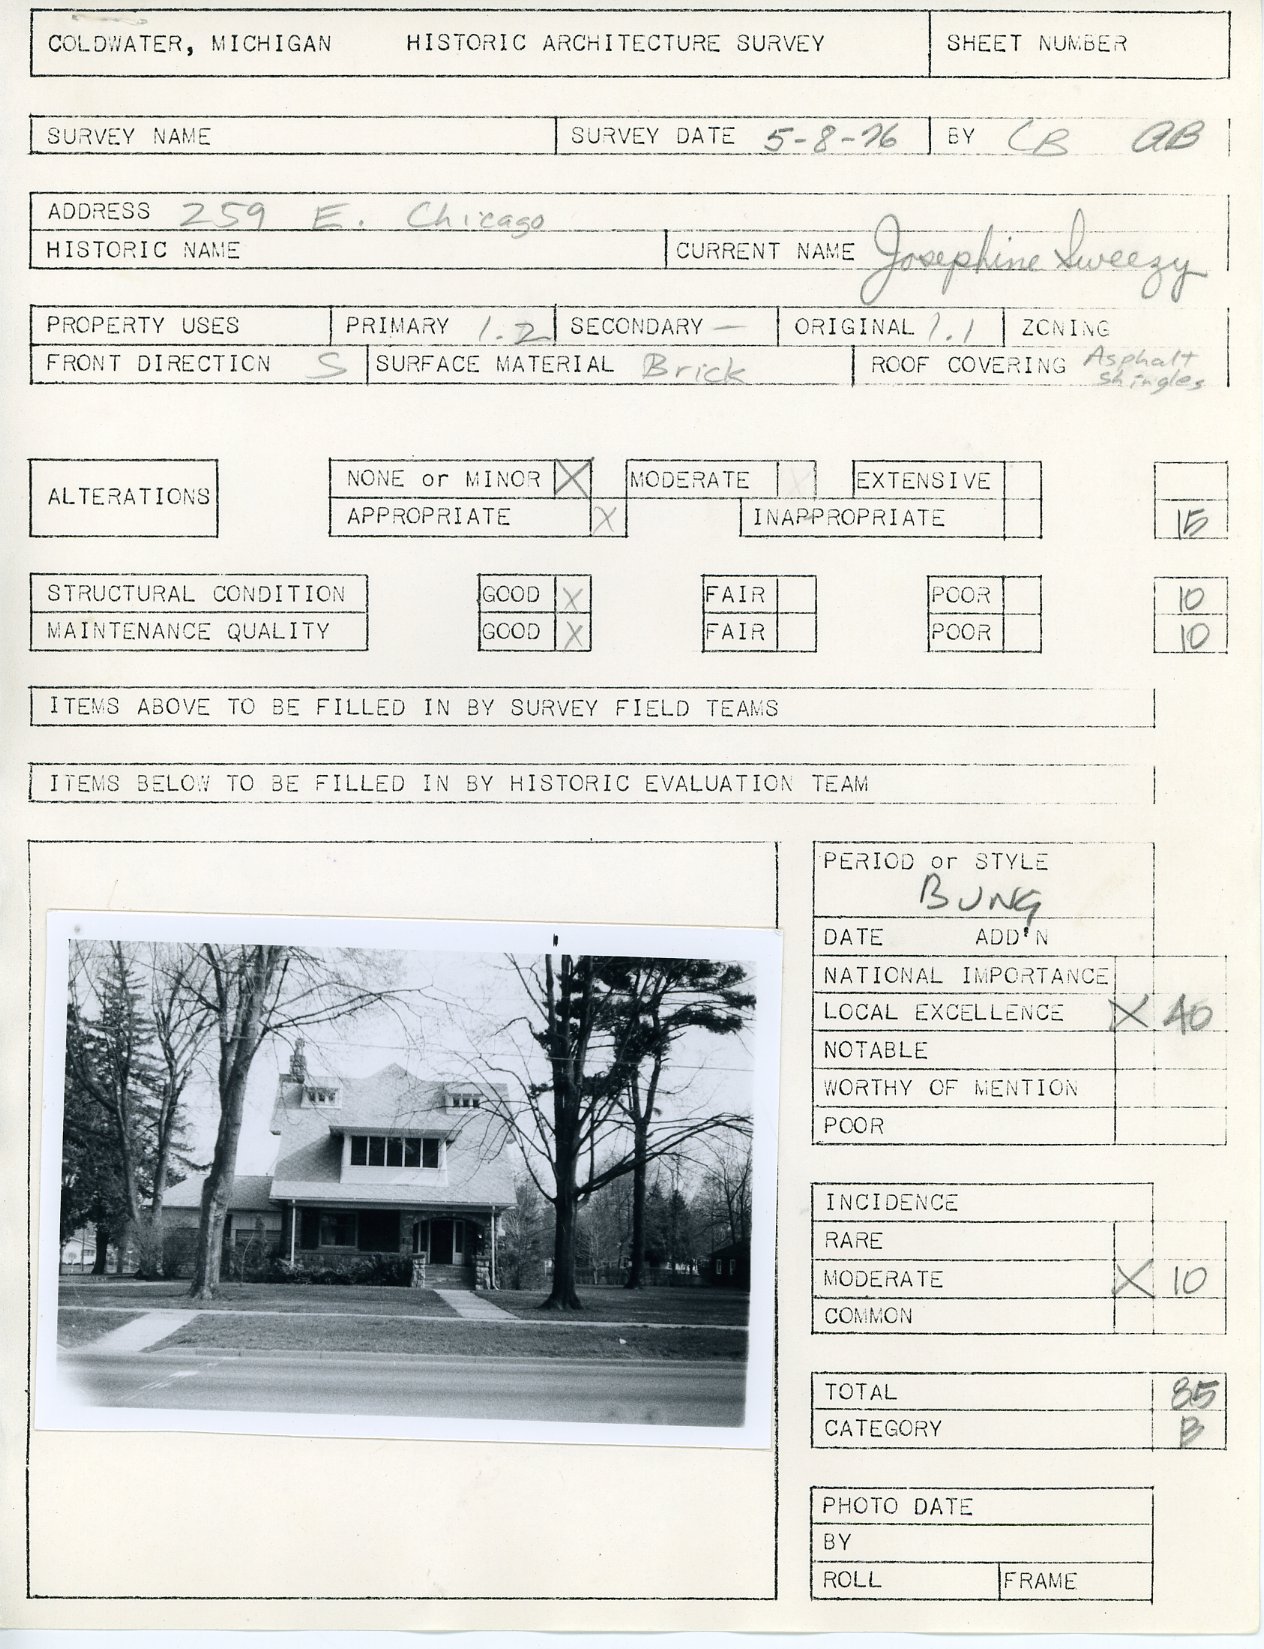 COLDWATER, MICHIGAN HISTORIC ARCHITECTURE SURVEY SHEET NUMBER
SURVEY NAME SURVEY DATE 5-8-76 BY CB AB
ADDRESS 259 E. Chicago
HISTORIC NAME CURRENT NAME Josephine Sweezy
PROPERTY USES PRIMARY 1.2 SECONDARY — ORIGINAL 1.1 ZONING
FRONT DIRECTION S SURFACE MATERIAL Brick ROOF COVERING Asphalt
Shingles
NONE or MINOR X MODERATE X EXTENSIVE
ALTERATIONS
APPROPRIATE X INAPPROPRIATE 15
STRUCTURAL CONDITION GOOD X FAIR POOR 10
MAINTENANCE QUALITY GOOD X FAIR POOR 10
ITEMS ABOVE TO BE FILLED IN BY SURVEY FIELD TEAMS
ITEMS BELOW TO BE FILLED IN BY HISTORIC EVALUATION TEAM
PERIOD or STYLE
BUNG
DATE ADD'N
NATIONAL IMPORTANCE
LOCAL EXCELLENCE X 40
NOTABLE
WORTHY OF MENTION
POOR
INCIDENCE
RARE
MODERATE X 10
COMMON
TOTAL 85
CATEGORY B
PHOTO DATE
BY
ROLL FRAME